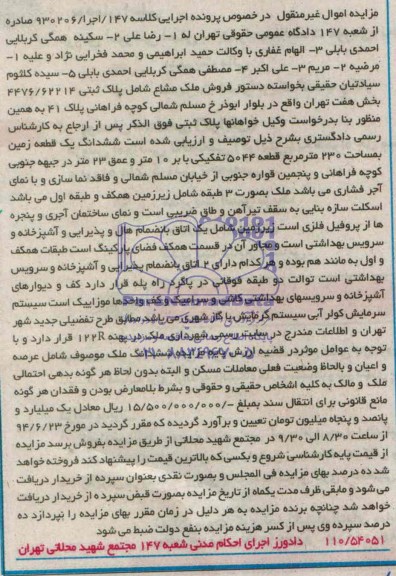 مزایده اموال غیرمنقول در خصوص پرونده اجرایی کلاسه ۱۴۷/اجرا/۹۳۰۲۰۶ صادره
از شعبه ۱۴۷ دادگاه عمومی حقوقی تهران له ۱- رضا علی ۲- سکینه همگی کربلایی
احمدی بابلی ۳- الهام غفاری با وکالت حمید ابراهیمی و محمد فخرایی نژاد و علیه ۱-
مرضیه ۲- مریم ۳- علی اکبر ۴- مصطفی همگی کربلایی احمدی بابلی ۵- سیده کلثوم
سیادتیان حقیقی بخواسته دستور فروش ملک مشاع شامل پلاک ثبتی ۴۴۷۶/۶۲۲۱۴
بخش هفت تهران واقع در بلوار ابوذر خ مسلم شمالی کوچه فراهانی پلاک ۴۱ به همین
منظور بنا بدرخواست وکیل خواهانها پلاک ثبتی فوق الذکر پس از ارجاع به کارشناس
رسمی دادگستری بشرح ذیل توصیف و ارزیابی شده است ششدانگ یک قطعه زمین
بمساحت ۲۳۰ مترمربع قطعه ۵۰۴۴ تفکیکی با بر ۱۰ متر و عمق ۲۳ متر در جبهه جنوبی
کوچه فراهانی و پنجمین قواره جنوبی از خیابان مسلم شمالی و فاقد نما سازی و با نمای
آجر فشاری می باشد ملک بصورت ۳ طبقه شامل زیرزمین همکف و طبقه اول می باشد
اسکلت سازه بنایی به سقف تیرآهن و طاق ضربیی است و نمای ساختمان آجری و پنجره
ها از پروفیل فلزی است زیرزمین شامل یک اتاق بانضمام هال و پذیرایی و آشپزخانه و
سرویس بهداشتی است و مجاور آن در قسمت همکف فضای پارکینگ است طبقات همکف
و اول به مانند هم بوده و هر کدام دارای ۲ اتاق بانضمام پذیرایی و آشپزخانه و سرویس
بهداشتی است توالت دو طبقه فوقانی در پاگرد راه پله قرار دارد کف و دیوارهای
آشپزخانه و سرویسهای بهداشتی کاشی و سرامیک و کف واحدها موزاییک است سیستم
سرمایش کولر آبی سیستم گرمایش با گاز شهری می باشد مطابق طرح تفصیلی جدید شهر
تهران و اطلاعات مندرج در سایت رسمی شهرداری ملک در پهنه ۱۲۲R قرار دارد و با
توجه به عوامل موثر در قضیه ارزش پایه مزایده ششدانگ ملک موصوف شامل عرصه
و اعیان و بالحاظ وضعیت فعلی معاملات مسکن و البته بدون لحاظ هر گونه بدهی احتمالی
ملک و مالک به کلیه اشخاص حقیقی و حقوقی و بشرط بلامعارض بودن و فقدان هر گونه
مانع قانونی برای انتقال سند بمبلغ ۱۵/۵۰۰/۰۰۰/۰۰۰/- ریال معادل یک میلیارد و
پانصد و پنجاه میلیون تومان تعیین و برآورد گردیده که مقرر گردید در مورخ ۹۴/۶/۲۳
از ساعت ۸/۳۰ الی ۹/۳۰ در مجتمع شهید محلاتی از طریق مزایده بفروش برسد مزایده
از قیمت پایه کارشناسی شروع و بکسی که بالاترین قیمت را پیشنهاد کند فروخته خواهد
شد ده درصد بهای مزایده فی المجلس و بصورت نقدی بعنوان سپرده از خریدار دریافت
می شود و مابقی ظرف مدت یکماه از تاریخ مزایده بصورت قبض سپرده از خریدار دریافت
خواهد شد چنانچه برنده مزایده به هر دلیل در زمان مقرر بهای مزایده را نپردازد ده
درصد سپرده وی پس از کسر هزینه مزایده بنفع دولت ضبط می شود
۱۱۰/۵۴۰۵۱ دادورز اجرای احکام مدنی شعبه ۱۴۷ مجتمع شهید محلاتی تهران